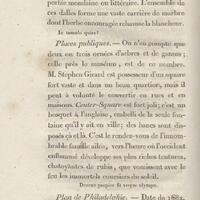 portée mondaine ou littéraire. L'ensemble de
ces dalles forme une vaste carrière de marbre
dont l'herbe encouragée rehausse la blancheur.
In tumulo quies!
Places publiques. — On n'en compte que
deux ou trois ornées d'arbres et de gazons;
celle près le muséum, est de ce nombre.
M. Stephen Girard est possesseur d'un square
fort vaste et dans un beau quartier, mais il
peut à volonté le convertir en rues et en
maisons. Center-Square est fort joli; c'est un
bosquet à l'anglaise, embelli de la seule fon-
taine qu'il y ait en ville; des bancs sont dispo-
sés çà et là. C'est le rendez-vous de l'innom-
brable famille ailée, vers l'heure où l'occident
enflammé développe ses plus riches tentures,
chatoyantes de rubis, que venaient avec le
feu les immortels coursiers du soleil.
Plan de Philadelphie. — Date de 1682.